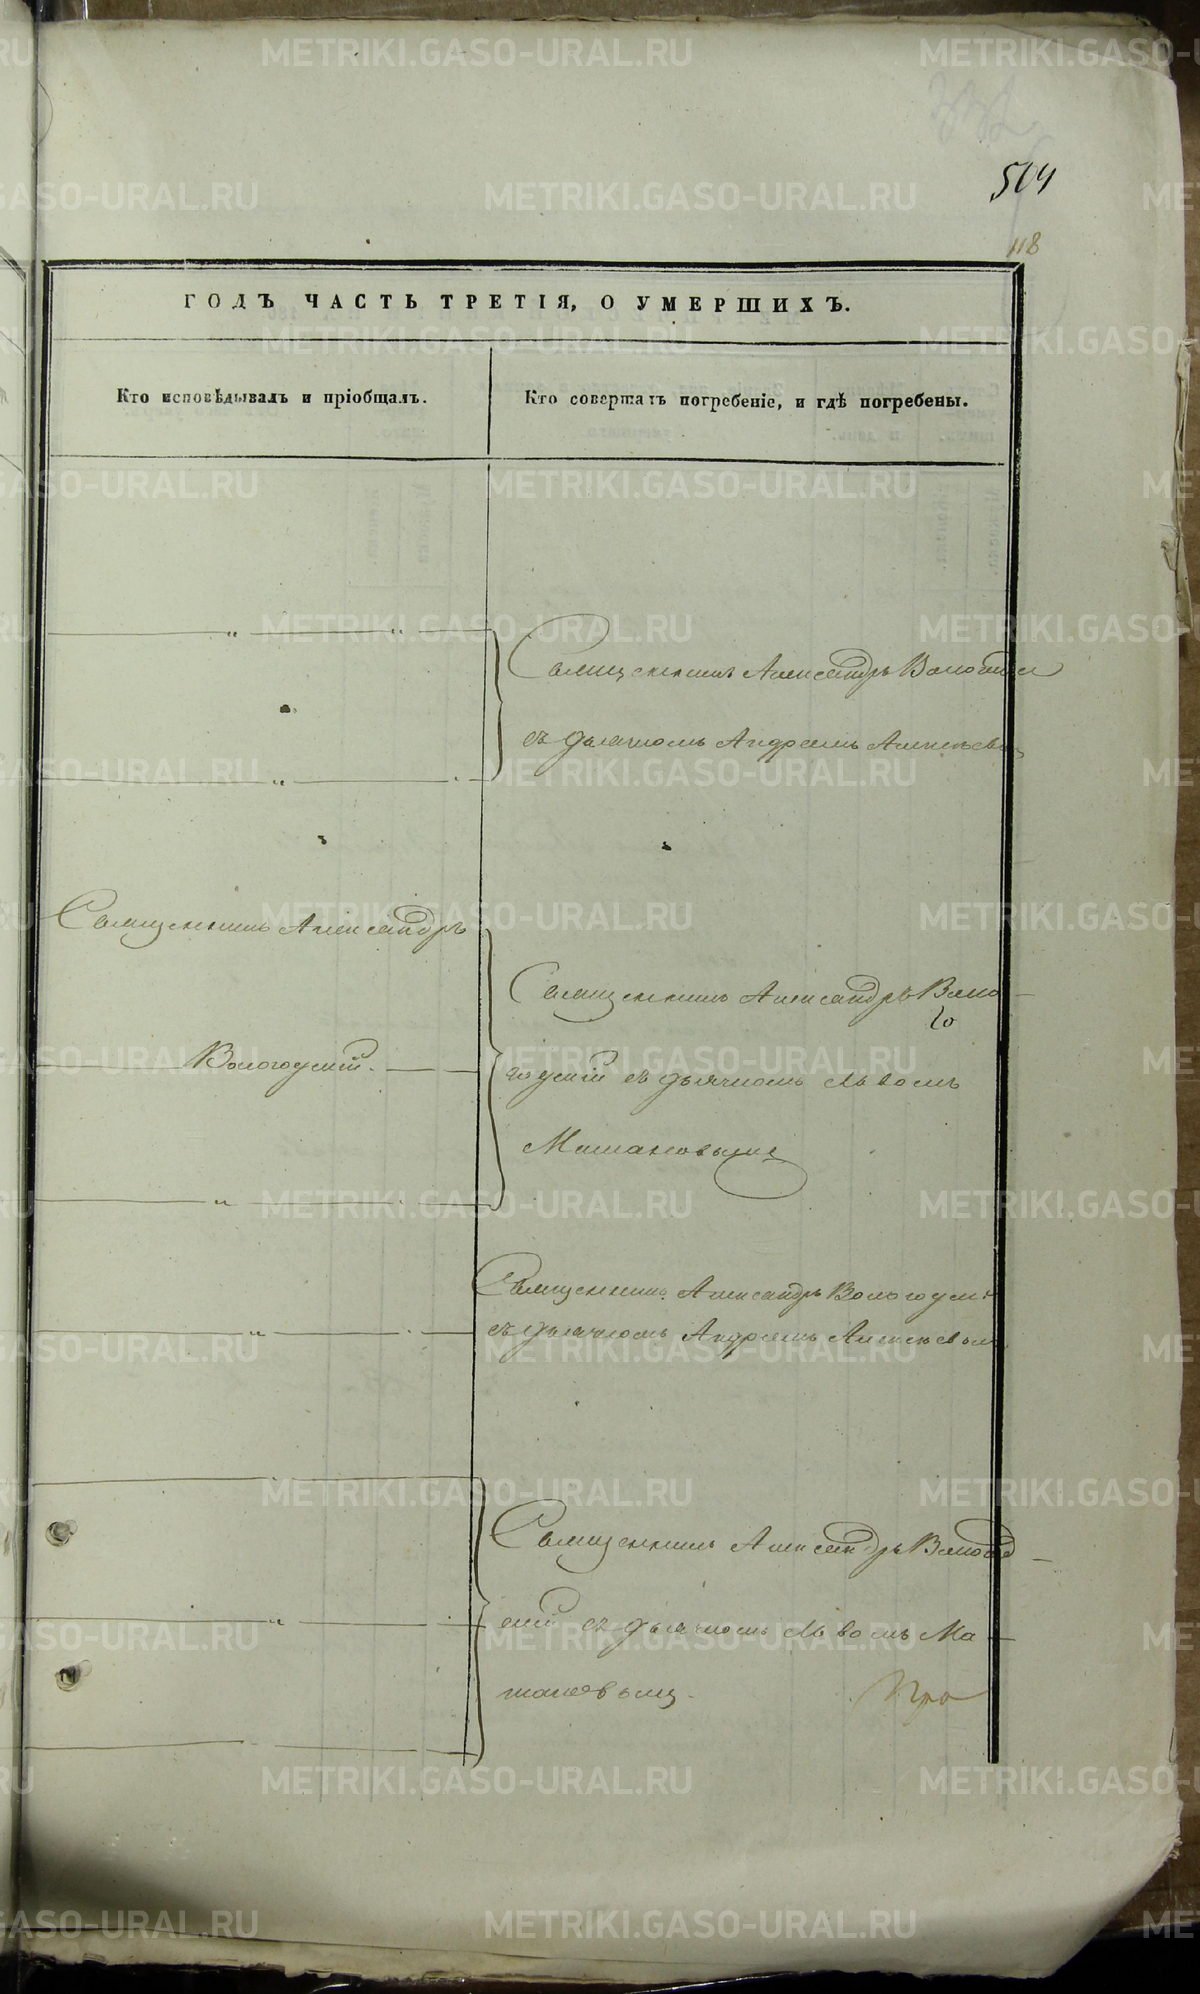 504
118
ГОДЪ ЧАСТЬ ТРЕТІЯ, О УМЕРШИХЪ.
Кто исповѣдывалъ и пріобщалъ.
Кто совершалъ погребеніе, и гдѣ погребены.
Священникъ Александръ
съ дьячкомъ Андреемъ Алексѣевы
Священникъ Александръ
Вологодскій.
Священникъ Александръ Воло
годскій съ дьячкомъ Львомъ
Машановымъ
Священникъ Александръ Вологодскі
съ дьячкомъ Андреемъ Алексѣевым
Священникъ Александръ Вологод
скій съ дьячкомъ Львомъ Ма
шановымъ.
METRIKI.GASO-URAL.RU